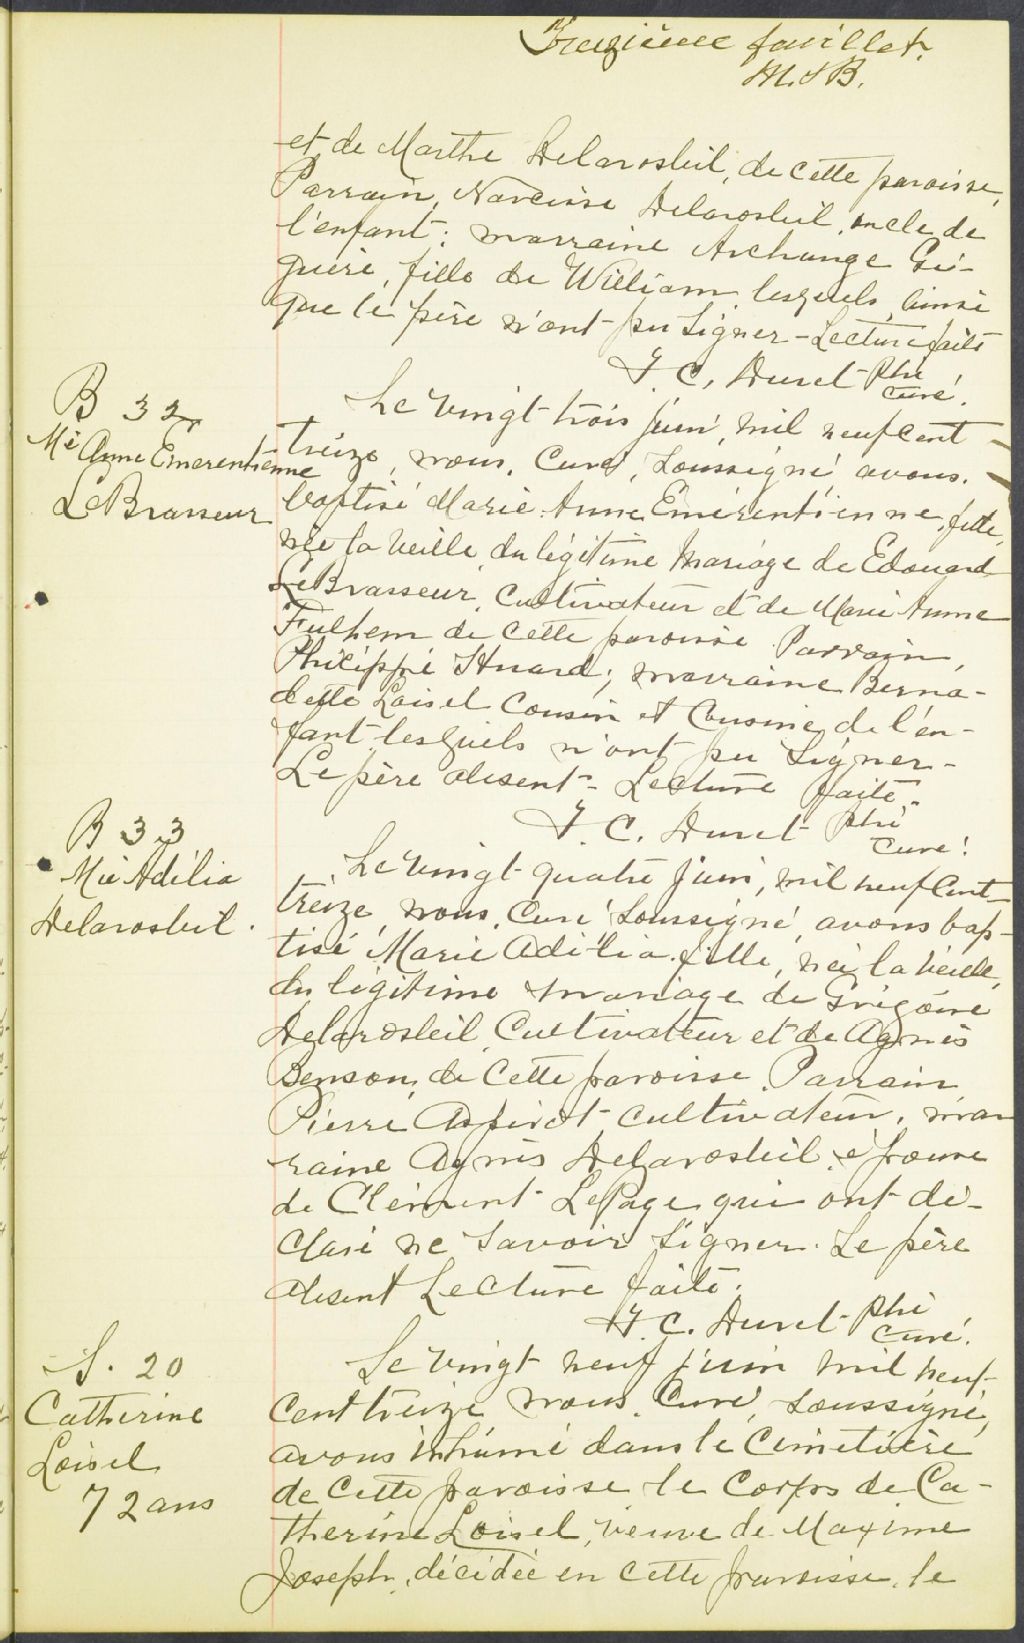 Treizième feuillet.
M. S B.
et de Marthe Delarosbil, de cette paroisse,
Parrain, Narcisse Delarosbil, oncle de
l'enfant; marraine Archange Gi-
guère, fille de William lesquels, ainsi
que le père n'ont pu signer - Lecture faite
J. C. Huret Ptre
Curé.
B 32
Mie Anne Emerentienne
LeBrasseur
Le vingt-trois juin, mil neuf cent
treize, nous, Curé, soussigné, avons
baptisé Marie Anne Emérentienne, fille,
née la veille, du légitime mariage de Edouard
LeBrasseur, Cultivateur et de Marie Anne
Fulhem de cette paroisse Parrain,
Philippe Huard; marraine Berna-
dette Loisel Cousin et Cousine de l'en-
fant lesquels n'ont pu signer -
Le père absent - Lecture faite.
J. C. Huret Ptre
Curé.
B 33
Mie Adélia
Delarosbil.
Le vingt-quatre juin, mil neuf Cent
treize, nous, Curé soussigné, avons bap-
tisé Marie Adélia fille, née la veille,
du légitime mariage de Grégoire
Delarosbil, Cultivateur et de Agnès
Benson, de Cette paroisse. Parrain
Pierre Aspirot cultivateur, mar
raine Agnès Delarosbil, épouse
de Clément LePage qui ont dé-
claré ne savoir signer. Le père
absent Lecture faite.
J. C. Huret Ptre
Curé.
S. 20
Catherine
Loisel
72 ans
Le vingt neuf juin mil neuf-
cent treize nous, Curé, soussigné,
avons inhumé dans le Cimetière
de Cette paroisse le Corps de Ca-
therine Loisel, veuve de Maxime
Joseph, décédée en cette paroisse, le